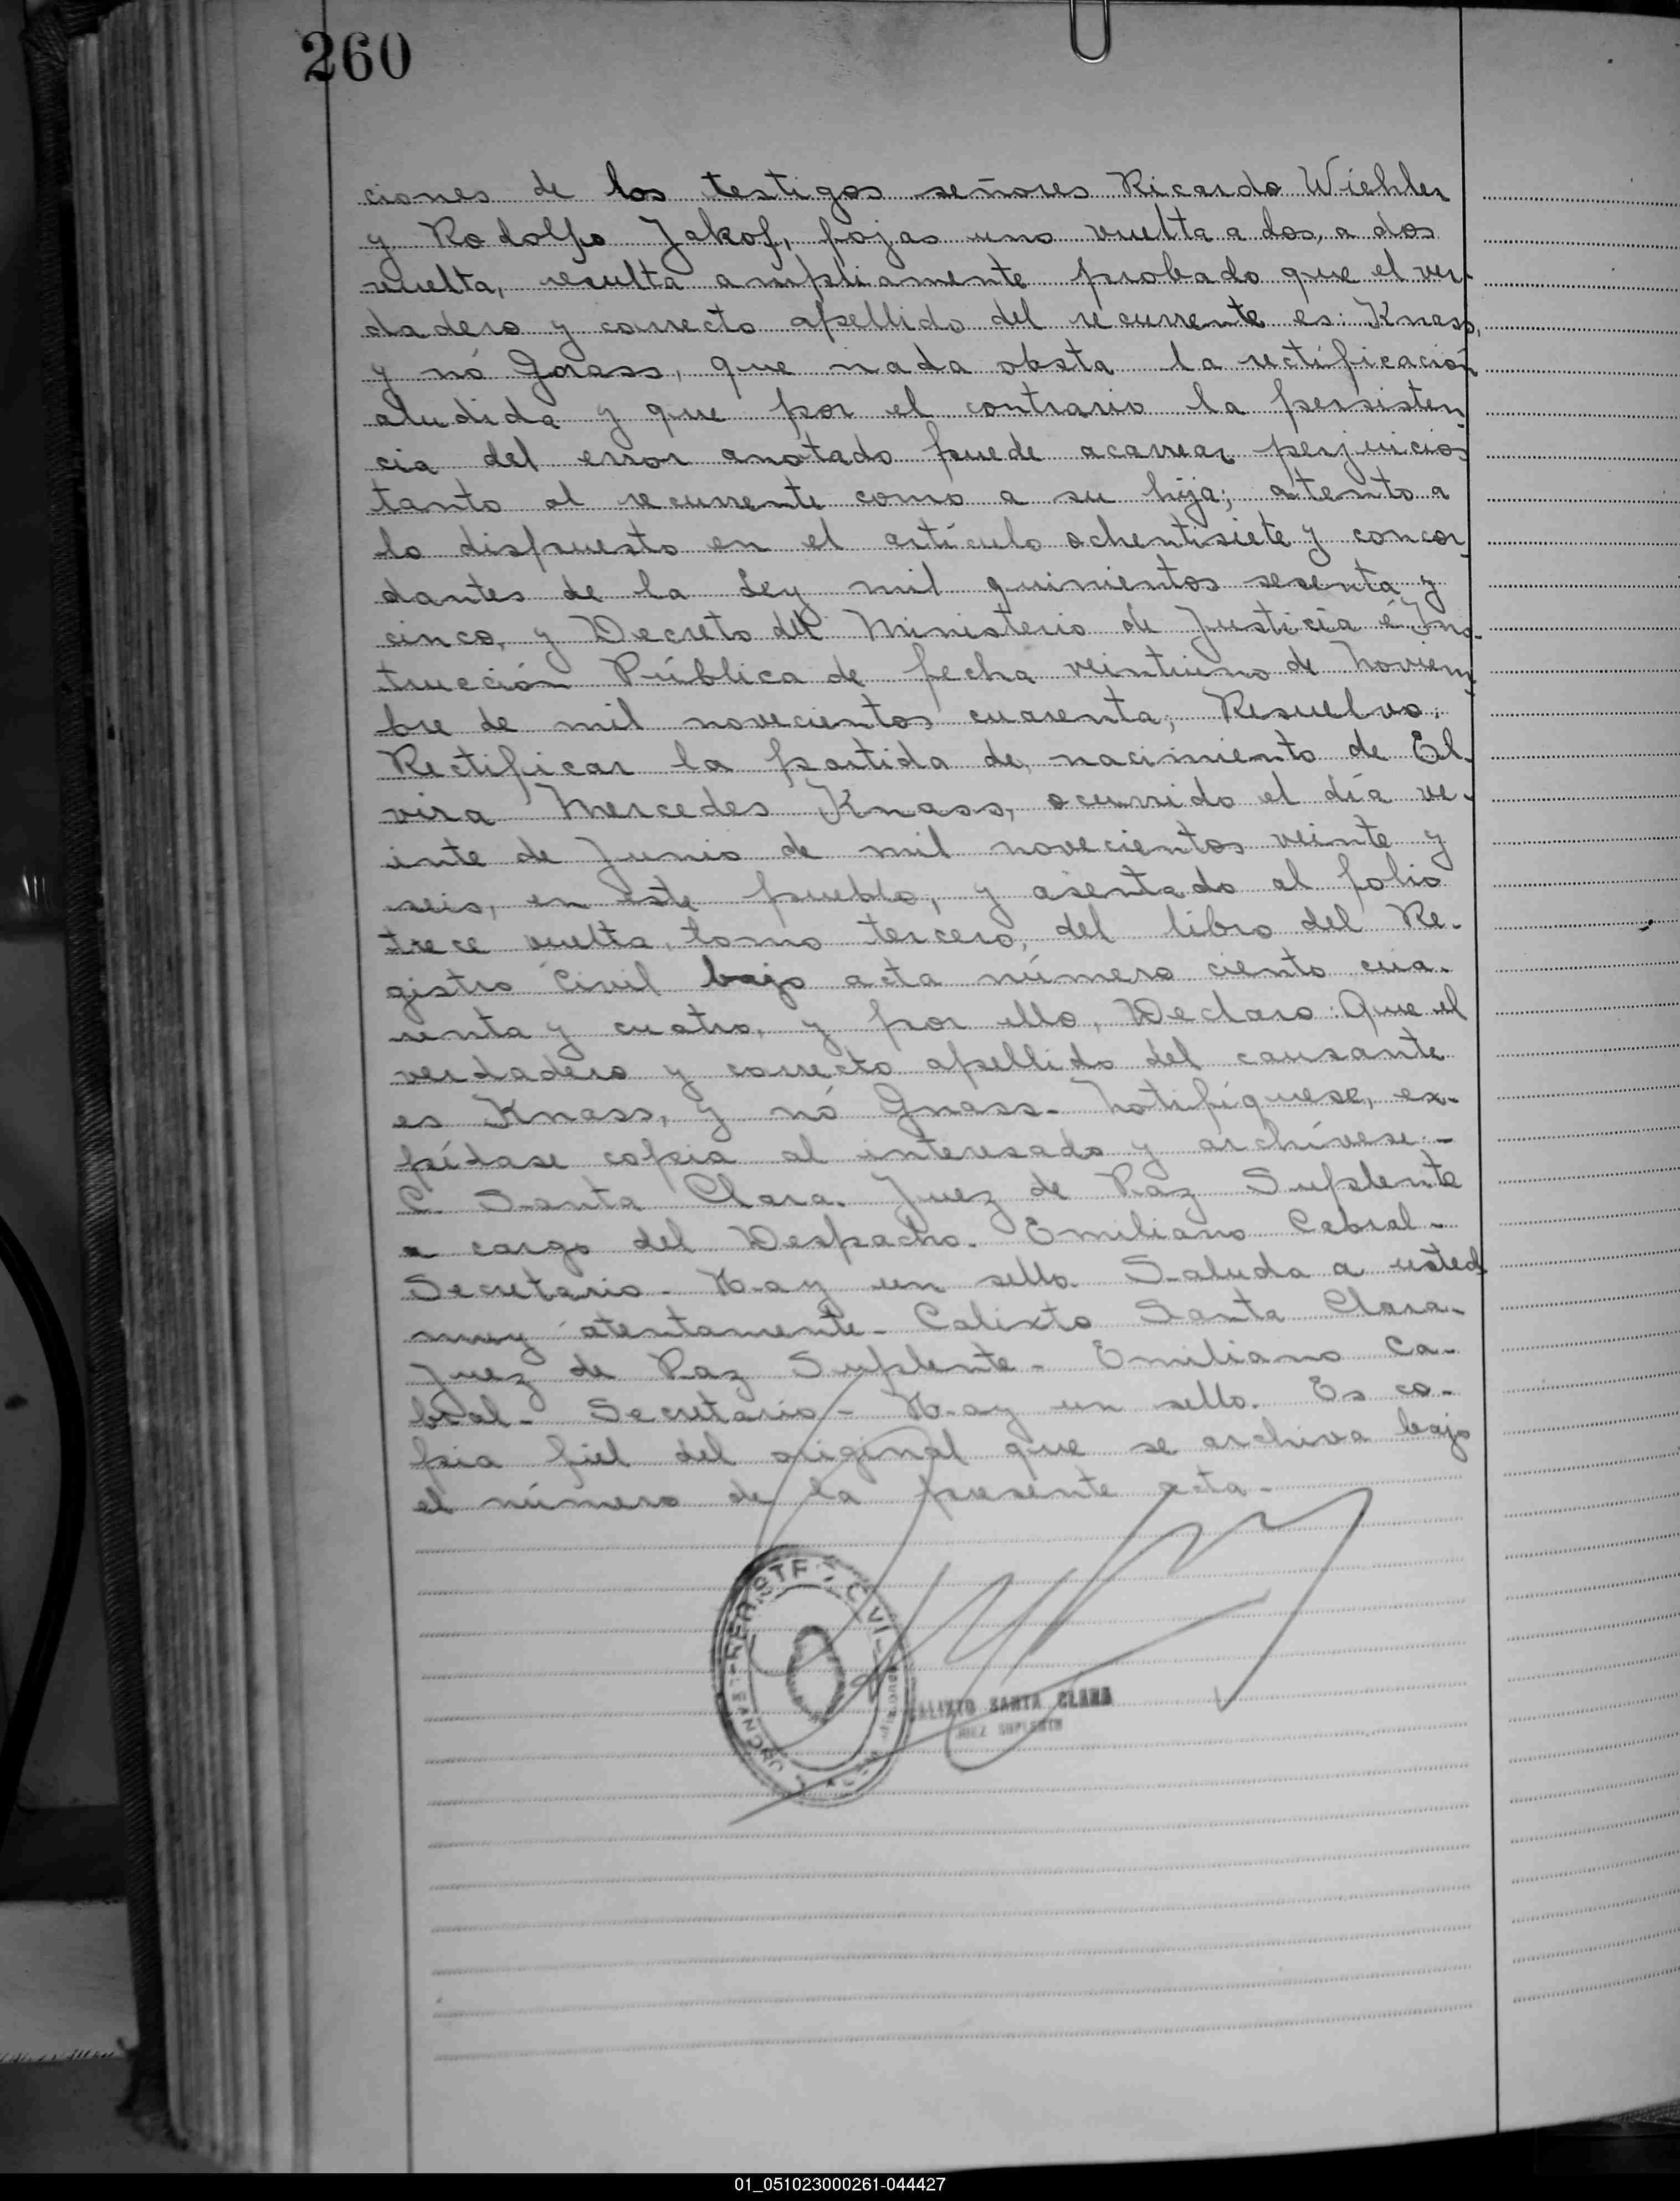 260
ciones de los testigos señores Ricardo Wiehler
y Rodolfo Jakof, fojas uno vuelta a dos, a dos
vuelta, resulta ampliamente probado que el ver-
dadero y correcto apellido del recurrente es: Knass,
y nó Gnass, que nada obsta la rectificación
aludida y que por el contrario la persisten-
cia del error anotado puede acarrear perjuicios
tanto al recurrente como a su hija; atento a
lo dispuesto en el artículo ochentisiete y concor-
dantes de la Ley mil quinientos sesenta y
cinco, y Decreto del Ministerio de Justicia é Ins-
trucción Pública de fecha veintiuno de Noviem-
bre de mil novecientos cuarenta; Resuelvo:
Rectificar la partida de nacimiento de El-
vira Mercedes Knass, ocurrido el día ve-
inte de Junio de mil novecientos veinte y
seis, en este pueblo, y asentado al folio
trece vuelta, tomo tercero, del libro del Re-
gistro Civil bajo acta número ciento cua-
renta y cuatro, y por ello, Declaro: Que el
verdadero y correcto apellido del causante
es Knass, y nó Gnass- Notifíquese, ex-
pídase copia al interesado y archívese.-
C. Santa Clara. Juez de Paz Suplente
a cargo del Despacho. Emiliano Cabral-
Secretario- Hay un sello. Saluda a usted
muy atentamente- Calixto Santa Clara-
Juez de Paz Suplente- Emiliano Ca-
bral- Secretario- Hay un sello. Es co-
pia fiel del original que se archiva bajo
el número de la presente acta-
CALIXTO SANTA CLARA
JUEZ SUPLENTE
01_051023000261-044427